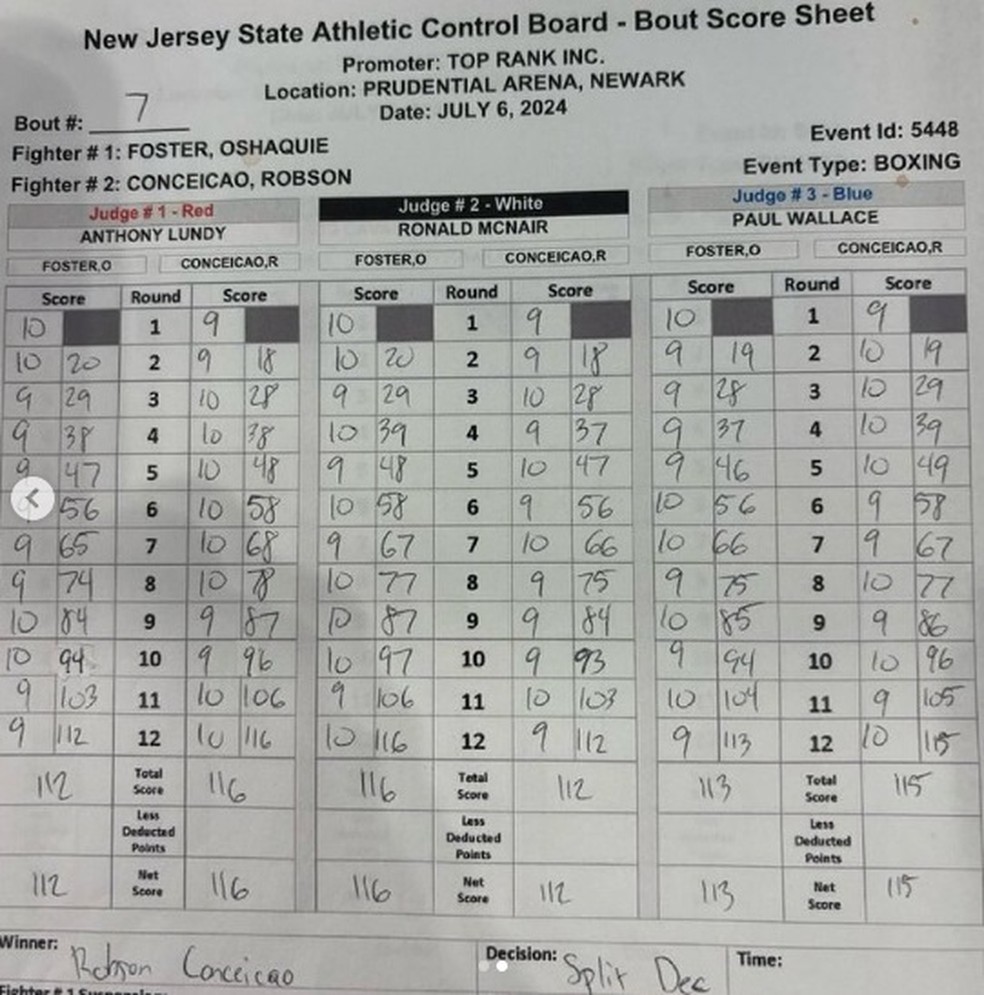 New Jersey State Athletic Control Board - Bout Score Sheet
Promoter: TOP RANK INC.
Location: PRUDENTIAL ARENA, NEWARK
Date: JULY 6, 2024
Bout #: 7
Event Id: 5448
Fighter # 1: FOSTER, OSHAQUIE
Event Type: BOXING
Fighter # 2: CONCEICAO, ROBSON
Judge # 1 - Red Judge # 2 - White Judge # 3 - Blue
ANTHONY LUNDY RONALD MCNAIR PAUL WALLACE
FOSTER,O CONCEICAO,R FOSTER,O CONCEICAO,R FOSTER,O CONCEICAO,R
Score Round Score Score Round Score Score Round Score
10 1 9 10 1 9 10 1 9
10 20 2 9 18 10 20 2 9 18 9 19 2 10 19
9 29 3 10 28 9 29 3 10 28 9 28 3 10 29
9 38 4 10 38 10 39 4 9 37 9 37 4 10 39
9 47 5 10 48 9 48 5 10 47 9 46 5 10 49
56 6 10 58 10 58 6 9 56 10 56 6 9 58
9 65 7 10 68 9 67 7 10 66 10 66 7 9 67
9 74 8 10 78 10 77 8 9 75 9 75 8 10 77
10 84 9 9 87 10 87 9 9 84 10 85 9 9 86
10 94 10 9 96 10 97 10 9 93 9 94 10 10 96
9 103 11 10 106 9 106 11 10 103 10 104 11 9 105
9 112 12 10 116 10 116 12 9 112 9 113 12 10 115
112 Total Score 116 116 Total Score 112 113 Total Score 115
Less Deducted Points Less Deducted Points Less Deducted Points
112 Net Score 116 116 Net Score 112 113 Net Score 115
Winner: Robson Conceicao Decision: Split Dec Time:
Fighter # 1 Suspension: